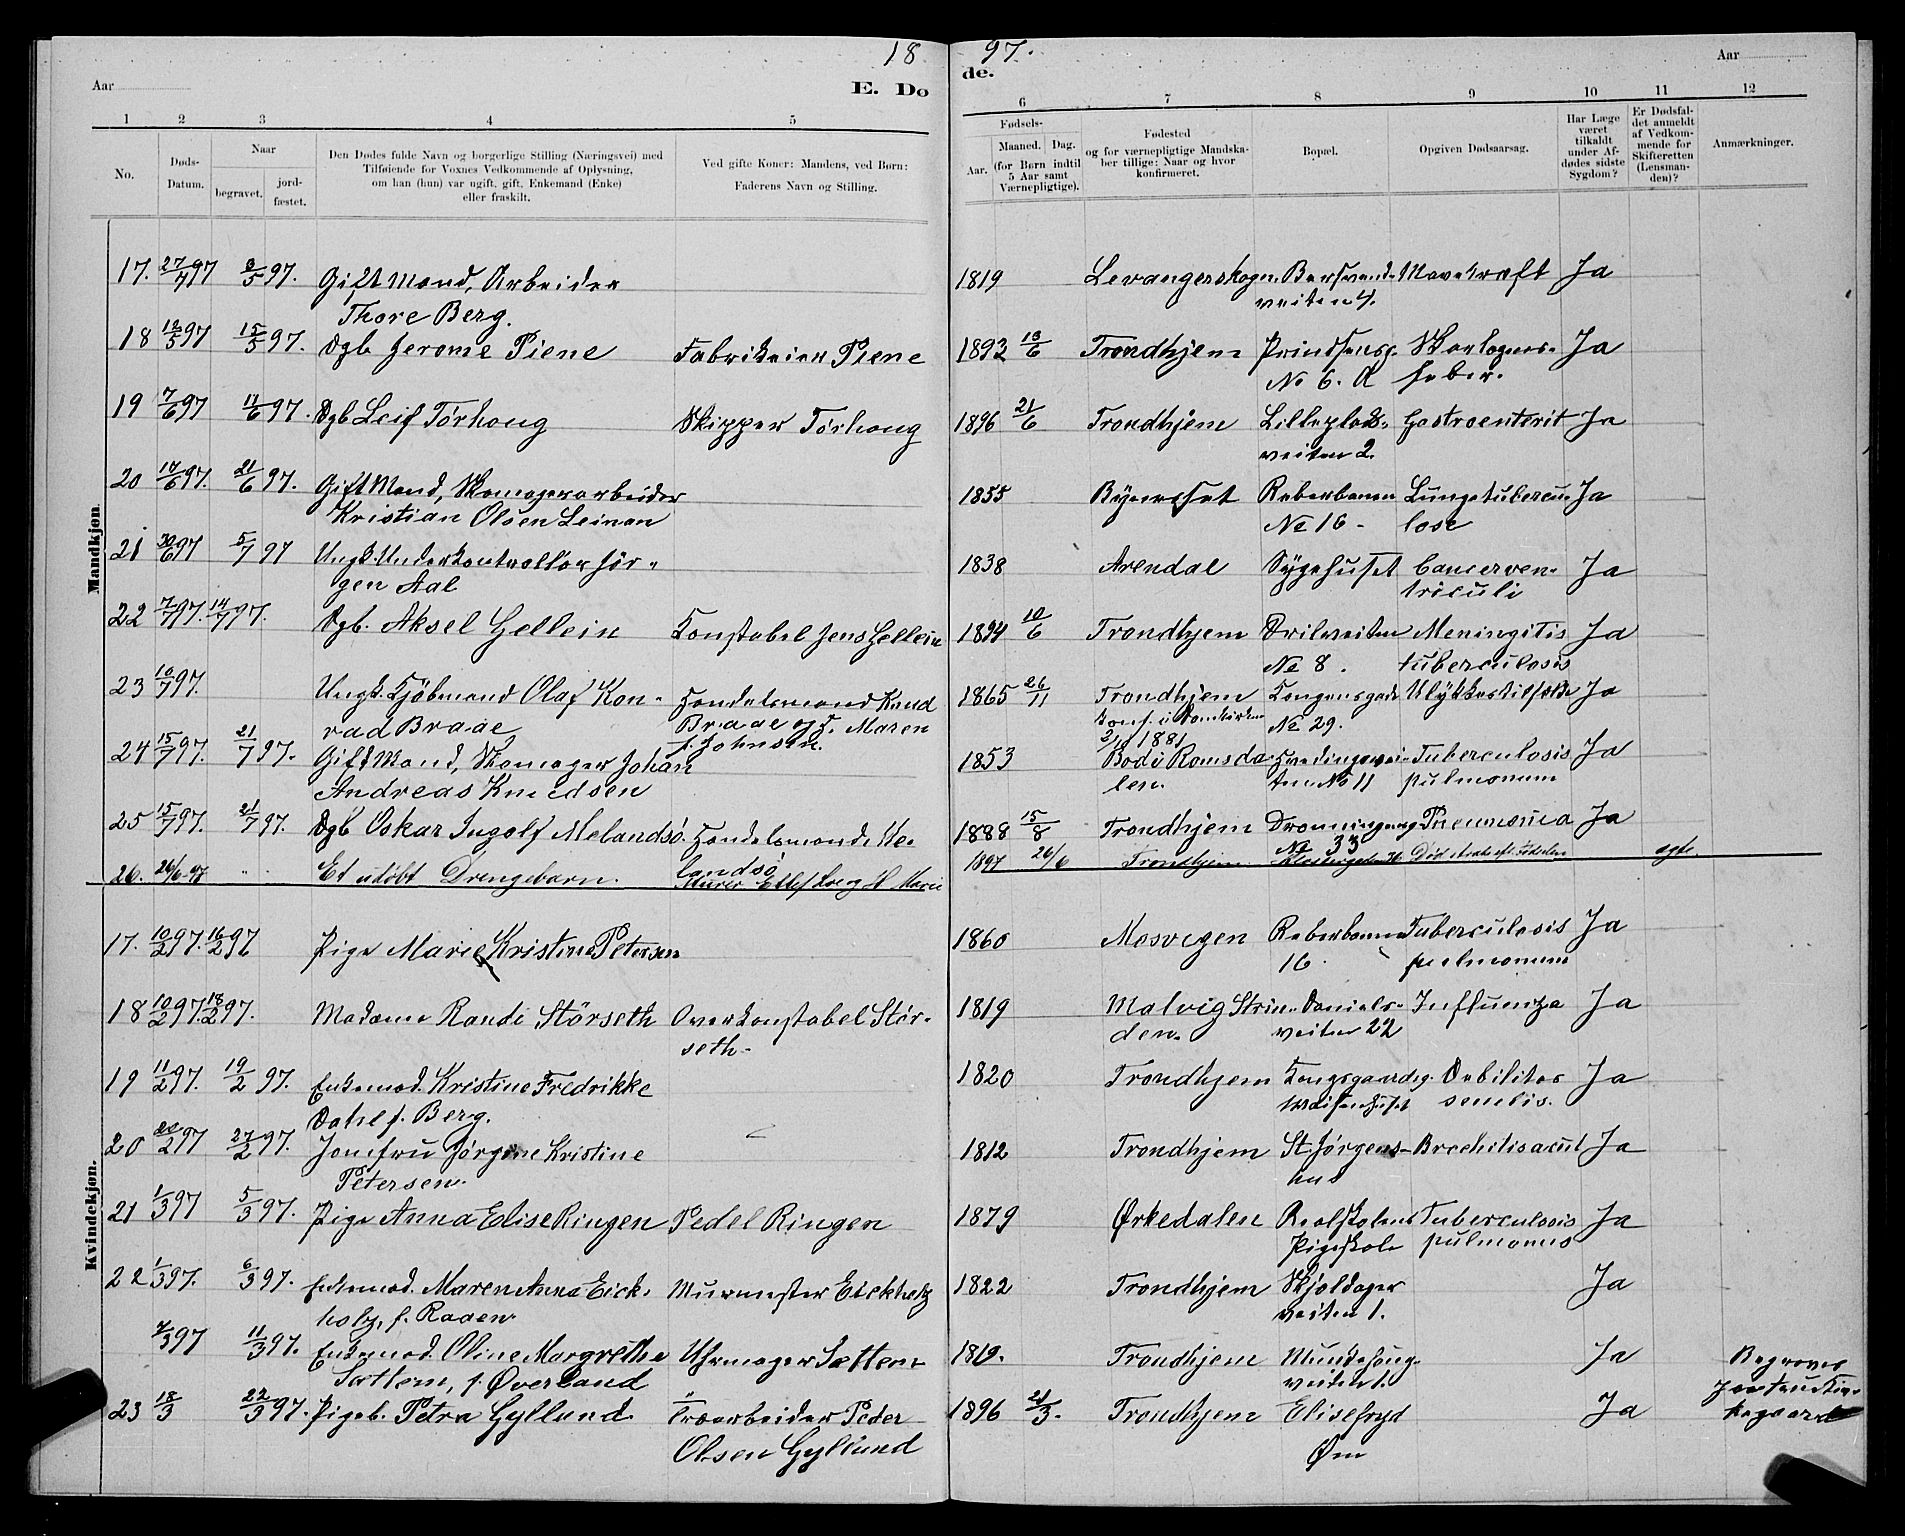 18 97.
Aar Aar
E. Do de.
1 2 3 4 5 6 7 8 9 10 11 12
No.
Døds-
Datum.
Naar
begravet.
jord-
fæstet.
Den Dødes fulde Navn og borgerlige Stilling (Næringsvei) med
Tilføiende for Voxnes Vedkommende af Oplysning,
om han (hun) var ugift, gift, Enkemand (Enke)
eller fraskilt.
Ved gifte Koner: Mandens, ved Børn:
Faderens Navn og Stilling.
Fødsels-
Aar.
Maaned. Dag.
(for Børn indtil
5 Aar samt
Værnepligtige).
Fødested
og for værnepligtige Mandska-
ber tillige: Naar og hvor
konfirmeret.
Bopæl.
Opgiven Dødsaarsag.
Har Læge
været
tilkaldt
under Af-
dødes sidste
Sygdom?
Er Dødsfal-
det anmeldt
af Vedkom-
mende for
Skifteretten
(Lensman-
den)?
Anmærkninger.
Mandkjøn.
17. 27/4 97 /5 97. Gift Mand, Arbeider 1819 Levangerskogn Mavekræft Ja
Thore Berg. veiten 4.
18 12/5 97 15/5 97. Dgb Jerome Piene Fabrikeier Piene 1893 13/6 Trondhjem Prindsensg. Skarlagens- Ja
No 6. A feber.
19 7/6 97 11/6 97. Dgb Leif Tørhoug Skipper Tørhoug 1896 21/6 Trondhjem Lilleplads- Gastroenterit Ja
veiten 2.
20 14/6 97. 21/6 97. Gift Mand, Skomagerarbeider 1855 Bynesset Reberbanen Lungetubercu- Ja
Kristian Olsen Leinan No 16 - lose
21 30/6 97 5/7 97 Ungk. Underkontrollør Jør- 1838 Arendal Sygehuset Cancer ven- Ja
gen Aal triculi
22 7/7 97. 14/7 97. Dgb. Aksel Gellein Konstabel Jens Gellein 1894 10/6 Trondhjem Meningitis Ja
No 8. tuberculosis
23 10/7 97. Ungk. Kjøbmand Olaf Kon- Handelsmand Knud 1865 26/11 Trondhjem Kongensgade Ulykkestilfælde Ja
rad Braae Braae og H. Maren Konf. i Domkirken No 29.
f. Johnsen. 2/10 1881
24 15/7 97. 21/7 97. Gift Mand, Skomager Johan 1853 Bodø Romsda- Tuberculosis Ja
Andreas Knudsen len. ten No 11 pulmonum
25 15/7 97. 21/7 97. Dgb Oskar Ingolf Melandsø. Handelsmand Me- 1888 15/8 Trondhjem Dronningensg Pneumonia Ja
landsø No 33
26. 26/6 97 " Et udøbt Drengebarn. Murer H Marie 1897 26/6 Trondhjem Død strax eft. Fødselen ægte.
Kvindekjøn.
17. 10/2 97. 16/2 97 Pige Marie Kristine Petersen 1860 Mosvigen Reberbanen Tuberculosis Ja
16. pulmonum
18 10/2 97. 18/2 97. Madame Randi Størseth Overkonstabel Stør- 1819 Malvig Strin- Daniels- Influenza Ja
seth- den. veiten 22
19 11/2 97. 19/2 97. Enkemad. Kristine Fredrikke 1820 Trondhjem Kongsgaardsg. Debilitas Ja
f. Berg. Waisenhuset senilis.
20 20/2 97 27/2 97. Jomfru Jørgine Kristine 1812 Trondhjem St. Jørgens- Brochitis acut Ja
Petersen. hus
21 1/3 97 5/3 97. Pige Anna Elise Ringen Pedel Ringen 1879 Ørkedalen Realskolens Tuberculosis Ja
Pigeskole pulmonus
22 1/3 97. 6/3 97. Enkemad. Maren Anna Eick- Murmester Eickholz 1822 Trondhjem Skjoldager Ja
holz, f. Raaen veiten 1.
/3 97 11/3 97. Enkemad. Oline Margrethe Uhrmager Sættem 1819. Trondhjem Munkehaug- Ja Begraves
Sættem, f. Øverland veiten 1.
23 18/3 22/3 97. Pigeb. Petra Gyllund Træarbeider Peder 1896 21/3. Trondhjem Elisefryd Ja
Olsen Gyllund Øen